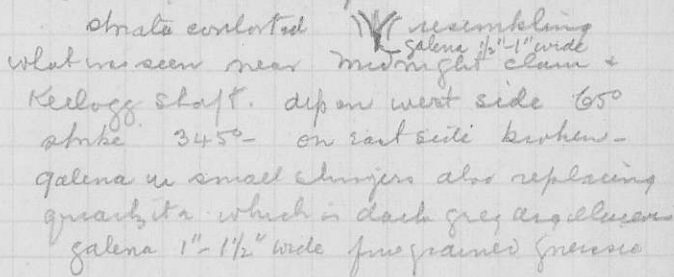 strata contorted resembling
galena ½"-1" wide
what was seen near Midnight claim &
Keelogg shaft. dip on west side 65°
strike 345°- on East side broken -
galena in small stringers also replacing
quartzite which is dark grey argillaceous
galena 1"-1½" wide fine grained gneissic